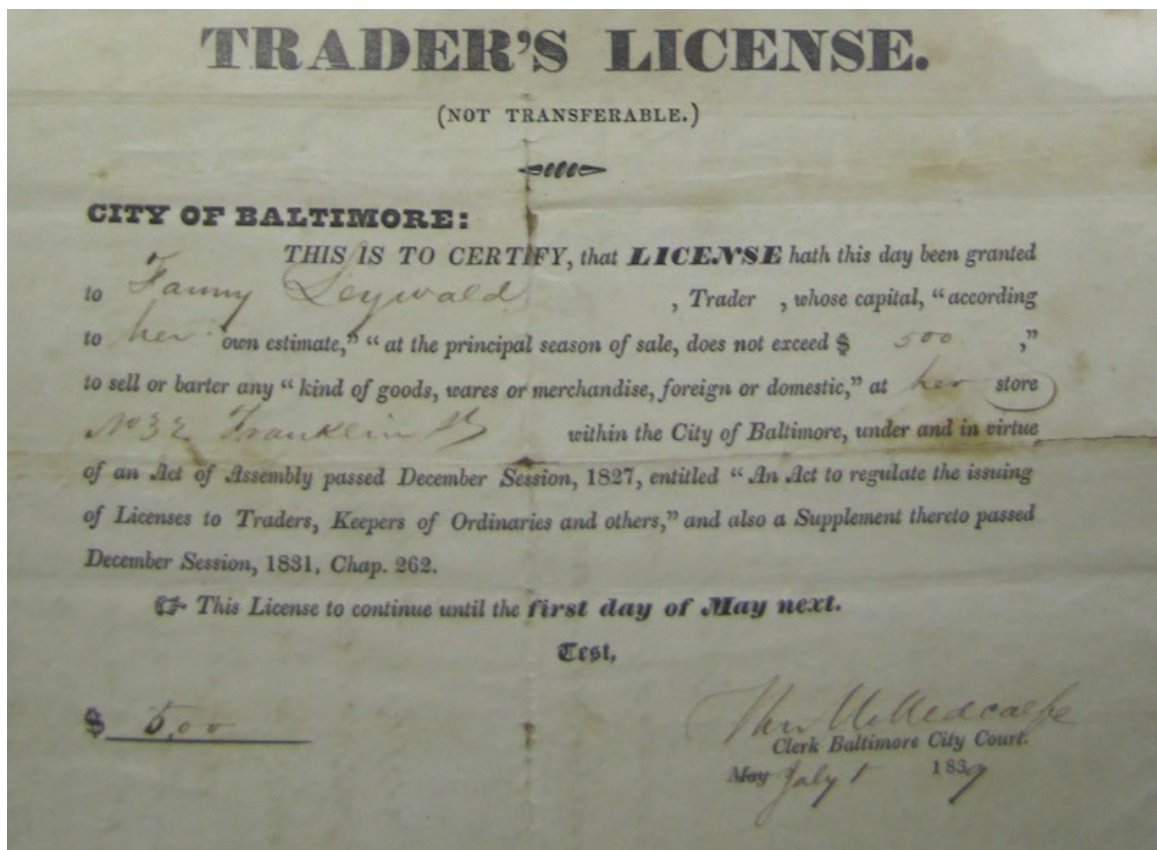 TRADER'S LICENSE.
(NOT TRANSFERABLE.)
CITY OF BALTIMORE:
THIS IS TO CERTIFY, that LICENSE hath this day been granted
to Fanny Seywald , Trader , whose capital, "according
to her own estimate," "at the principal season of sale, does not exceed $ 500 ,"
to sell or barter any "kind of goods, wares or merchandise, foreign or domestic," at her store
No 32 Franklin St within the City of Baltimore, under and in virtue
of an Act of Assembly passed December Session, 1827, entitled "An Act to regulate the issuing
of Licenses to Traders, Keepers of Ordinaries and others," and also a Supplement thereto passed
December Session, 1831, Chap. 262.
☞ This License to continue until the first day of May next.
Test,
$ 5,00
Metcalfe
Clerk Baltimore City Court.
May July 1 1839